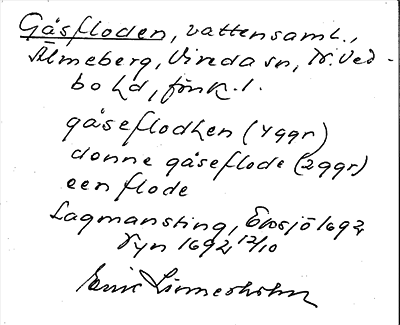 Gåsfloden, vattensaml.,
Älmeberg, Vireda sn, N. Ved-
bo hd, Jönk. l.
gåseflodhen (4ggr)
donne gåseflode (2ggr)
een flode
Lagmansting, Eksjö 1692
Syn 1692 12/10
Eric Linnerholm